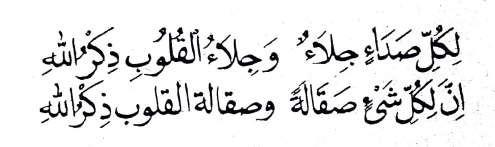 لِكُلِّ صَدَاءٍ جِلاَءٌ وَجِلاَءُ الْقُلُوبِ ذِكْرُ اللهِ
اِنَّ لِكُلِّ شَىْءٍ صَقَالَةً وصقالة القلوب ذِكْرُ اللهِ